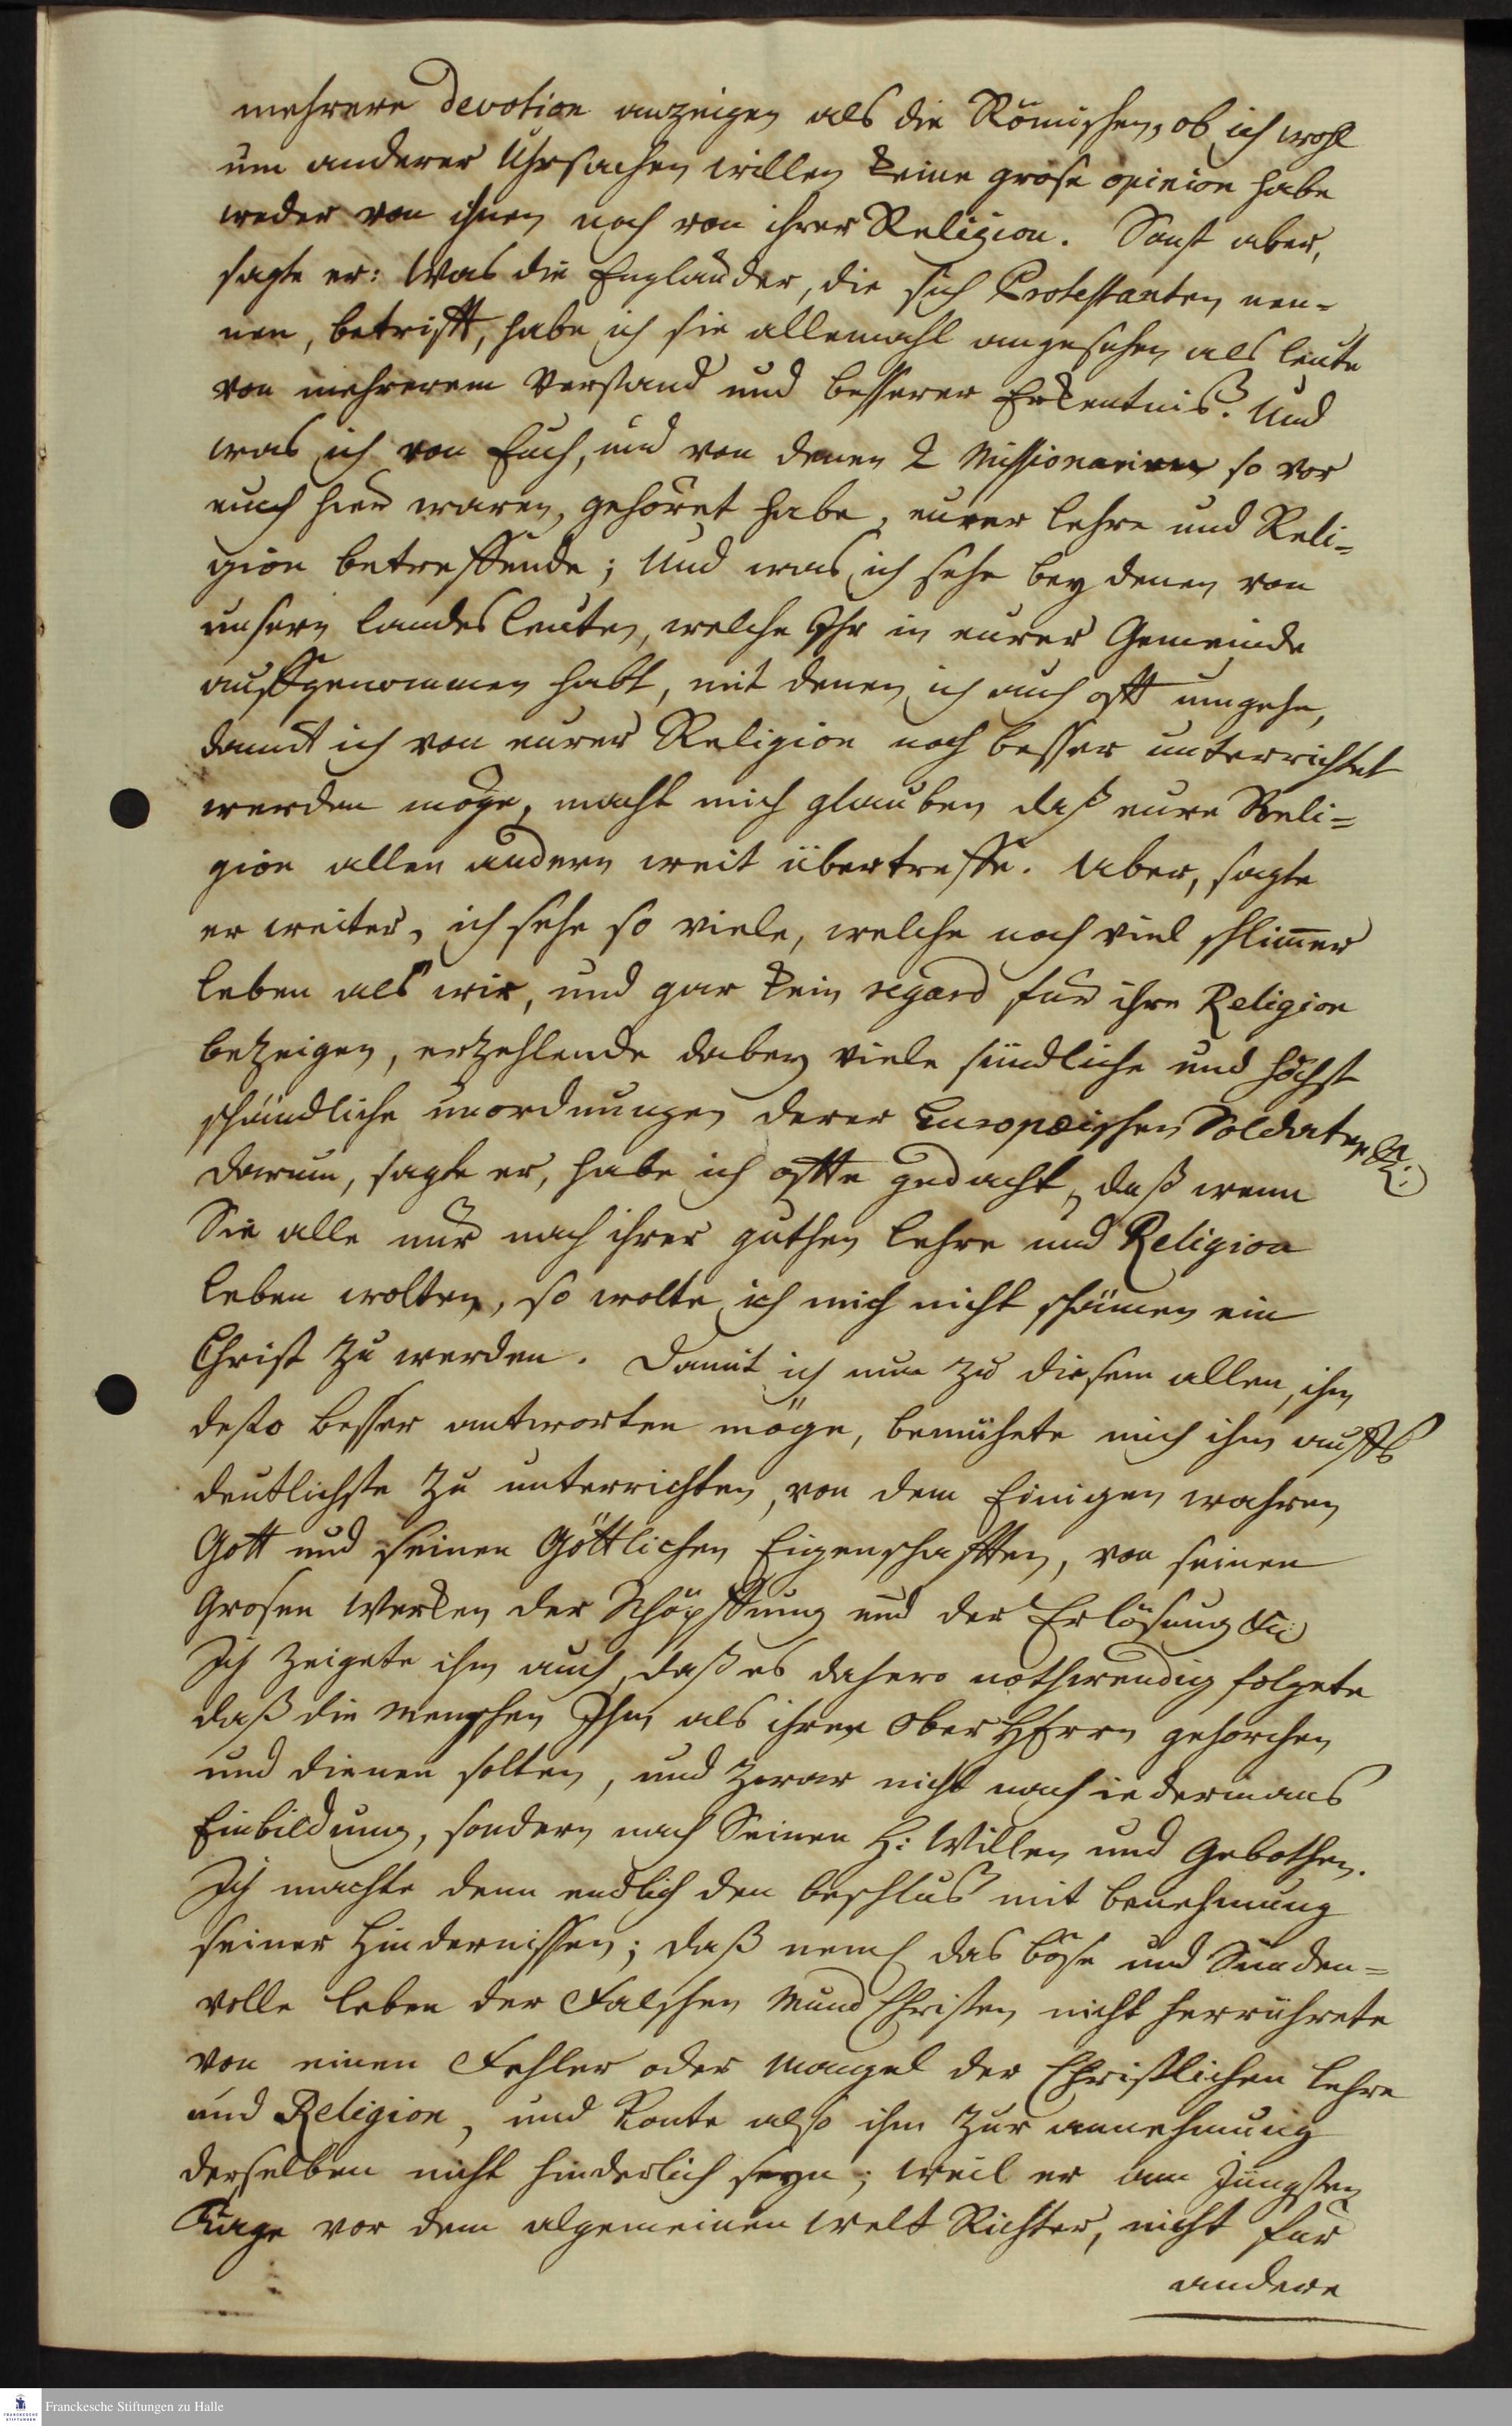 mehrere Devotion anzeigen als die Römischen, ob ich wohl
um anderer Uhrsachen willen keine grose opinion habe
weder von ihnen noch von ihrer Religion. Sonst aber,
sagte er: Was die Engländer, die sich Protestanten nen=
nen, betrifft, habe ich sie allemahl angesehen als leute
von mehrerem Verstand und besserer Erkentnis. Und
was ich von Euch, und von denen 2 Missionarien so vor
euch hier waren, gehöret habe, eurer lehre und Reli=
gion betreffende; Und was ich sehe bey denen von
unsern landesleuten, welche Ihr in eurer Gemeinde
auffgenommen habt, mit denen ich auch offt umgehe,
damit ich von eurer Religion noch besser unterrichtet
werden möge, macht mich glauben daß eure Reli=
gion allen andern weit übertreffe. Aber, sagte
er weiter, ich sehe so viele, welche noch viel schlim̅er
leben als wir, und gar kein regard für ihre Religion
bezeigen, erzehlende dabey viele sündliche und höchst
schändliche unordnungen derer Europæischen Soldaten &c.
Darum, sagte er, habe ich offte gedacht, daß wenn
Sie alle nur nach ihrer guthen lehre und Religion
leben wolten, so wolte ich mich nicht schämen ein
Christ zu werden. Damit ich nun zu diesem allen, ihm
desto besser antworten möge, bemühete mich ihm auffs
deutlichste zu unterrichten, von dem Einigen wahren
Gott und seinen Göttlichen Eigenschafften, von seinen
Grosen Werken der Schöpffung und der Erlösung &c
Ich zeigete ihm auch, daß es dahero nothwendig folgete
daß die Menschen Ihm als ihren OberHErrn gehorchen
und dienen solten, und zwar nicht nach iedermans
Einbildung, sondern nach Seinen H: Willen und Gebothen.
Ich machte denn endlich den beschlus mit benehmung
seiner Hindernissen; daß neml das böse und Sünden=
volle leben der Falschen Mund Christen nicht herrührete
von einen Fehler oder Mangel der Christlichen lehre
und Religion, und konte also ihm zur annehmung
derselben nicht hinderlich seyn; weil er am jüngsten
Tage vor dem algemeinen Welt Richter, nicht für
andere
Franckesche Stiftungen zu Halle